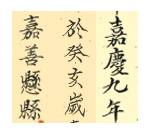 嘉慶九年
於癸亥歲
嘉善懸縣